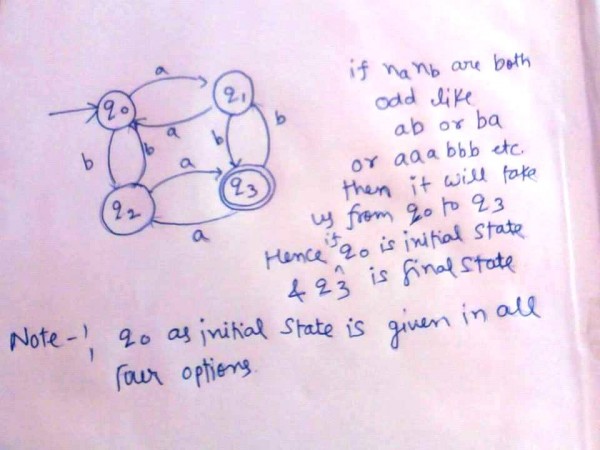 a
q0
q1
a
b
b
b
b
a
q2
q3
a
if na nb are both
odd like
ab or ba
or aaabbb etc.
then it will take
us from q0 to q3
Hence if q0 is initial state
& q3 is final state
Note -! q0 as initial state is given in all
four options.